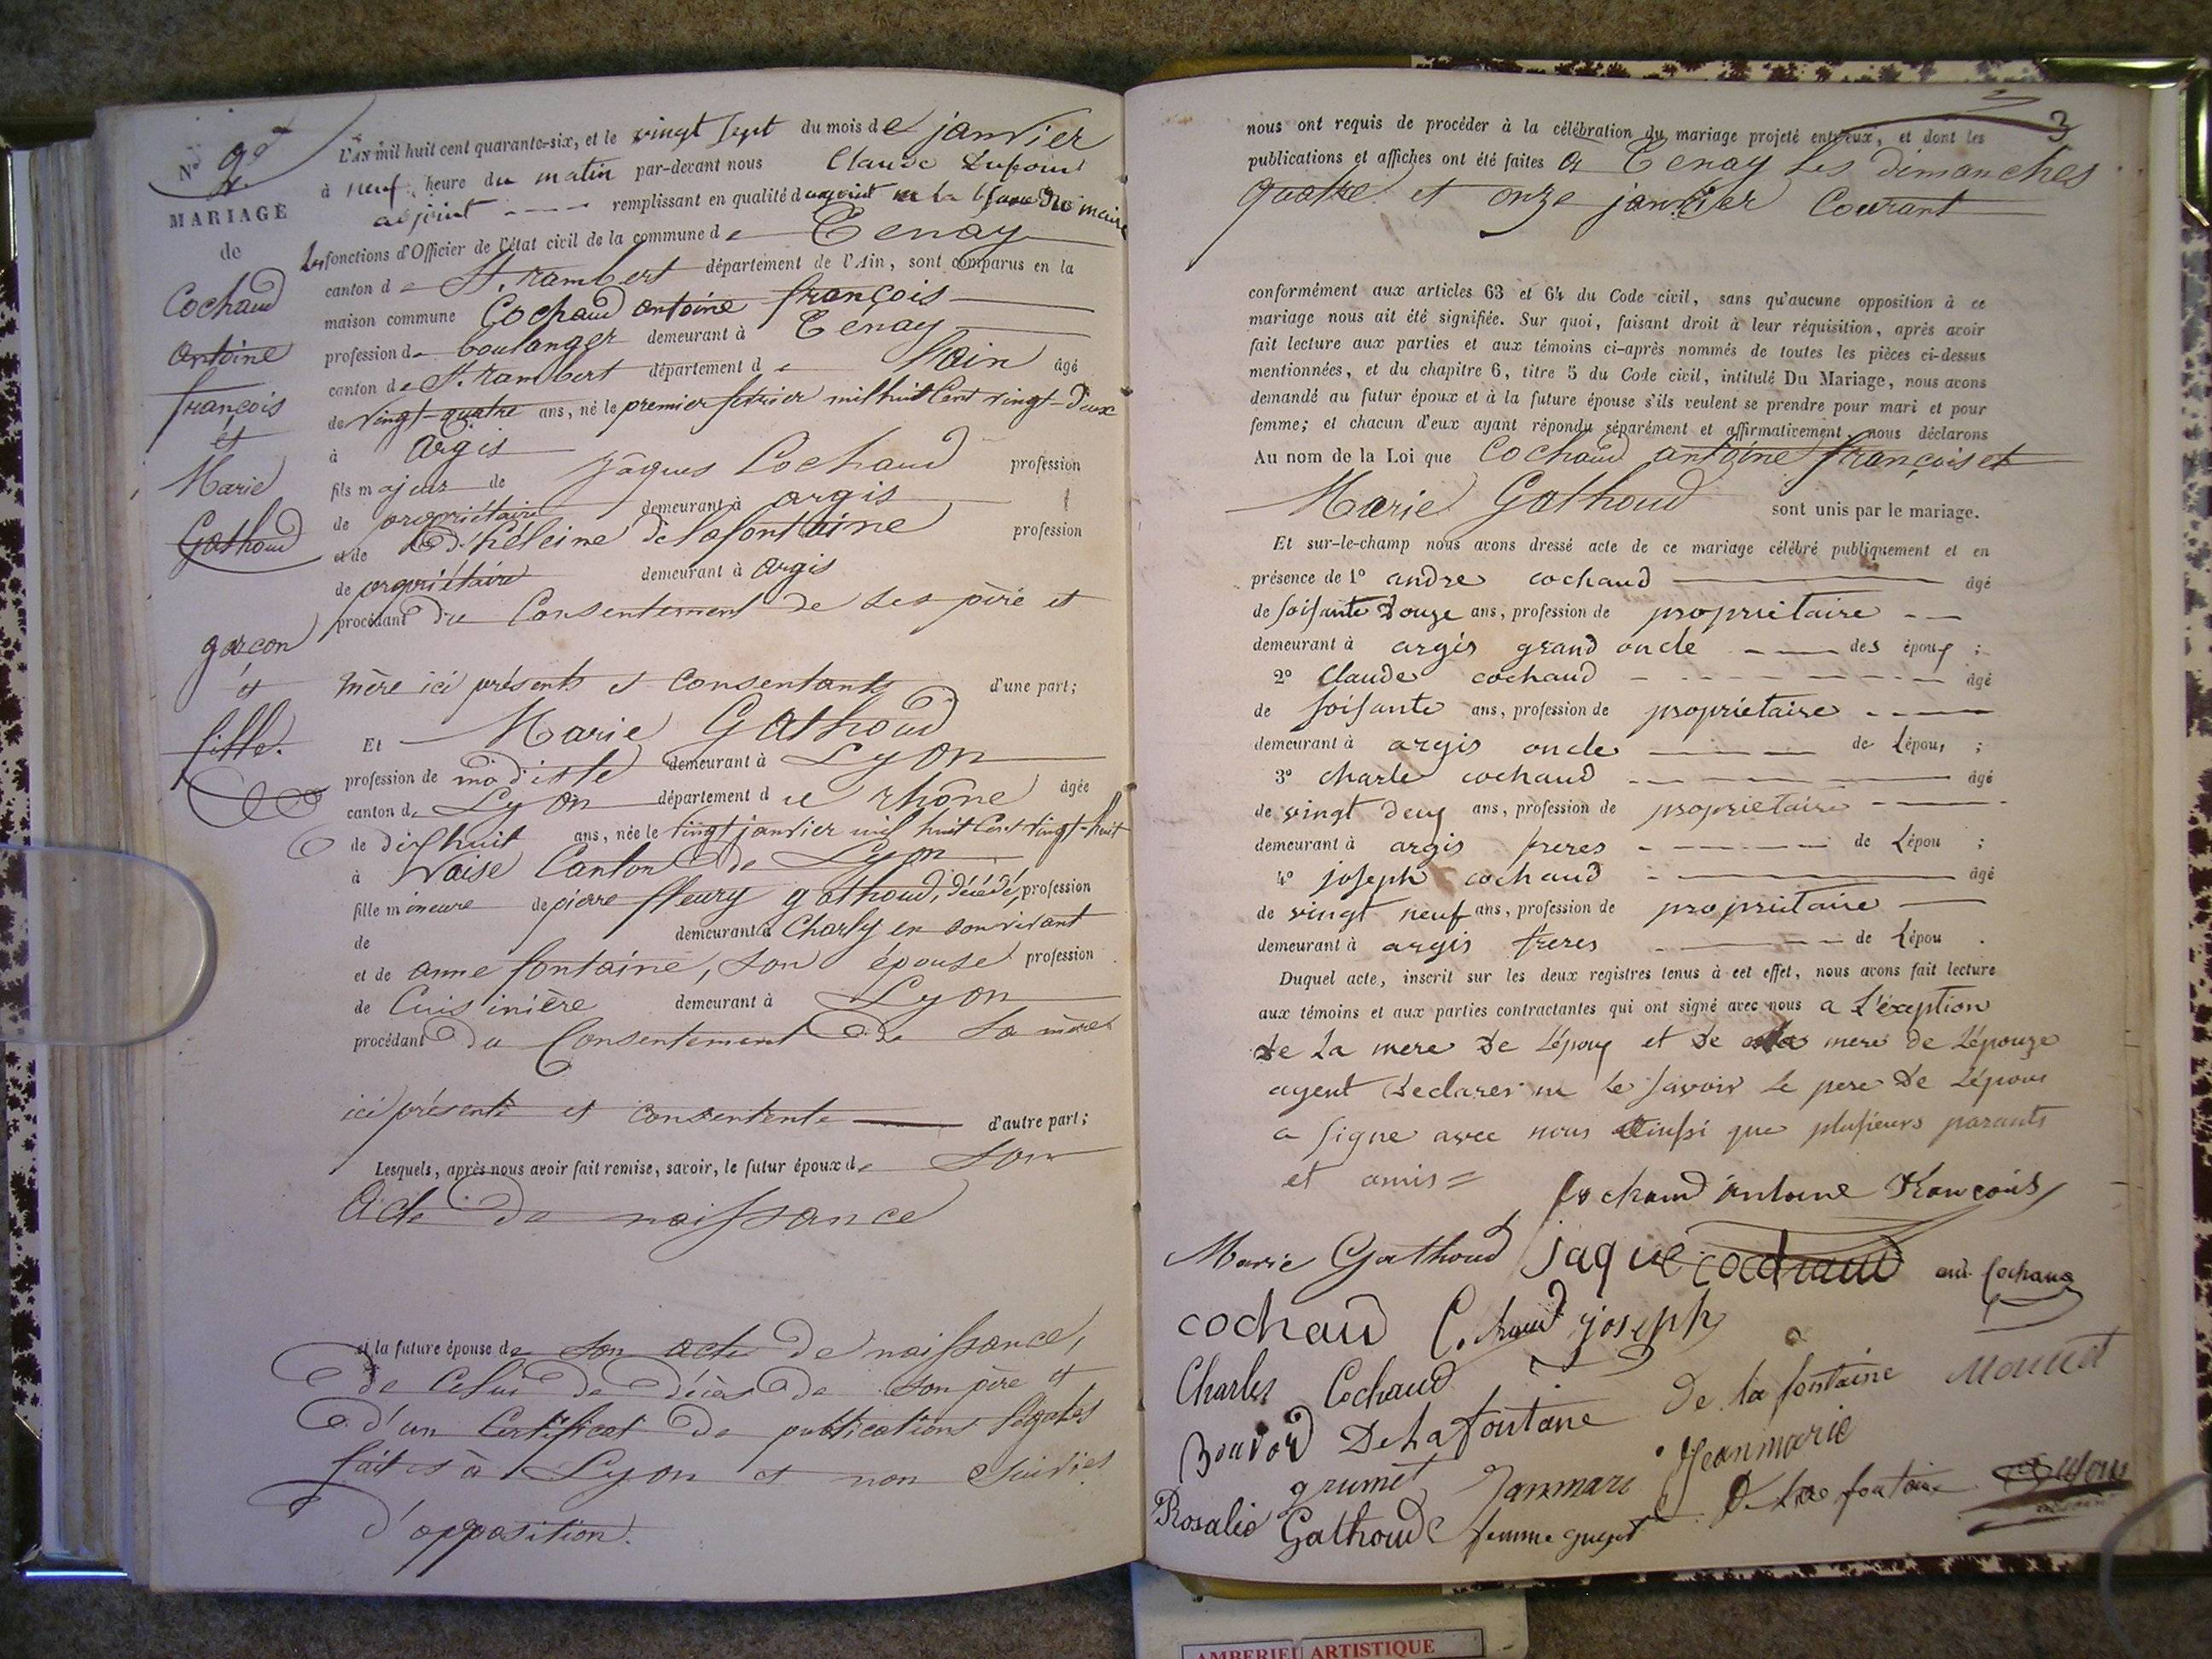 MARIAGE
de
Cochaud
antoine
françois
et
Marie
Gathoud
garçon
et
fille.
L'AN mil huit cent quarante-six, et le vingt sept du mois de janvier
à neuf heure du matin par-devant nous Claude Dufour
adjoint remplissant en qualité d'adjoint
les fonctions d'Officier de l'état civil de la commune de Tenay
canton de St. rambert département de l'Ain, sont comparus en la
maison commune Cochaud antoine françois
profession de boulanger demeurant à Tenay
canton de St. rambert département de Lain âgé
de vingt-quatre ans, né le premier fevrier mil huit Cent vingt-deux
à argis
fils majeur de Jâques Cochaud profession
de propriétaire demeurant à argis
et de héleine delafontaine profession
de propriétaire demeurant à argis
procédant du Consentement de ses père et
mère ici présents et Consentants d'une part;
Et Marie Gathoud
profession de modiste demeurant à Lyon
canton de Lyon département du rhône âgée
de dix huit ans, née le vingt janvier mil huit Cent vingt-huit
à Vaise Canton de Lyon
fille mineure de pierre fleury gathoud, décédé, profession
de demeurant à Charly en son vivant
et de anne fontaine, son épouse profession
de Cuisinière demeurant à Lyon
procédant du Consentement de sa mère
ici présente et consentente d'autre part;
Lesquels, après nous avoir fait remise, savoir, le futur époux de son
acte de naissance
et la future épouse de son acte de naissance,
de Celui de décès de son père et
d'un Certificat de publications légales
faites à Lyon et non suivies
d'opposition.
3
nous ont requis de procéder à la célébration du mariage projeté entr'eux, et dont les
publications et affiches ont été faites à Tenay les dimanches
quatre et onze janvier Courant
conformément aux articles 63 et 64 du Code civil, sans qu'aucune opposition à ce
mariage nous ait été signifiée. Sur quoi, faisant droit à leur réquisition, après avoir
fait lecture aux parties et aux témoins ci-après nommés de toutes les pièces ci-dessus
mentionnées, et du chapitre 6, titre 5 du Code civil, intitulé Du Mariage, nous avons
demandé au futur époux et à la future épouse s'ils veulent se prendre pour mari et pour
femme; et chacun d'eux ayant répondu séparément et affirmativement, nous déclarons
Au nom de la Loi que Cochaud antoine françois et
Marie Gathoud sont unis par le mariage.
Et sur-le-champ nous avons dressé acte de ce mariage célébré publiquement et en
présence de 1° andre cochaud âgé
de soisante douze ans, profession de proprietaire
demeurant à argis grand oncle des époux ;
2° Claude cochaud âgé
de soisante ans, profession de proprietaire
demeurant à argis oncle de Lépoux ;
3° charle cochaud âgé
de vingt deux ans, profession de proprietaire
demeurant à argis freres de Lépou ;
4° joseph cochaud âgé
de vingt neuf ans, profession de proprietaire
demeurant à argis freres de Lépou .
Duquel acte, inscrit sur les deux registres tenus à cet effet, nous avons fait lecture
aux témoins et aux parties contractantes qui ont signé avec nous a L'éxeption
de La mere de Lépoux et de la mere de Lépouze
ayent declarer ne le savoir le pere de Lépoux
a signe avec nous ainssi que plusieurs parants
et amis
Cochaud antoine François
Marie Gathoud jaque cochaud and. Cochaud
cochaud Cochaud joseph
Charles Cochaud De la fontaine
Bouvard De La fontaine
grumet Janmari Jeanmarie
Rosalie Gathoud femme De la fontaine Dufour
AMBERIEU ARTISTIQUE